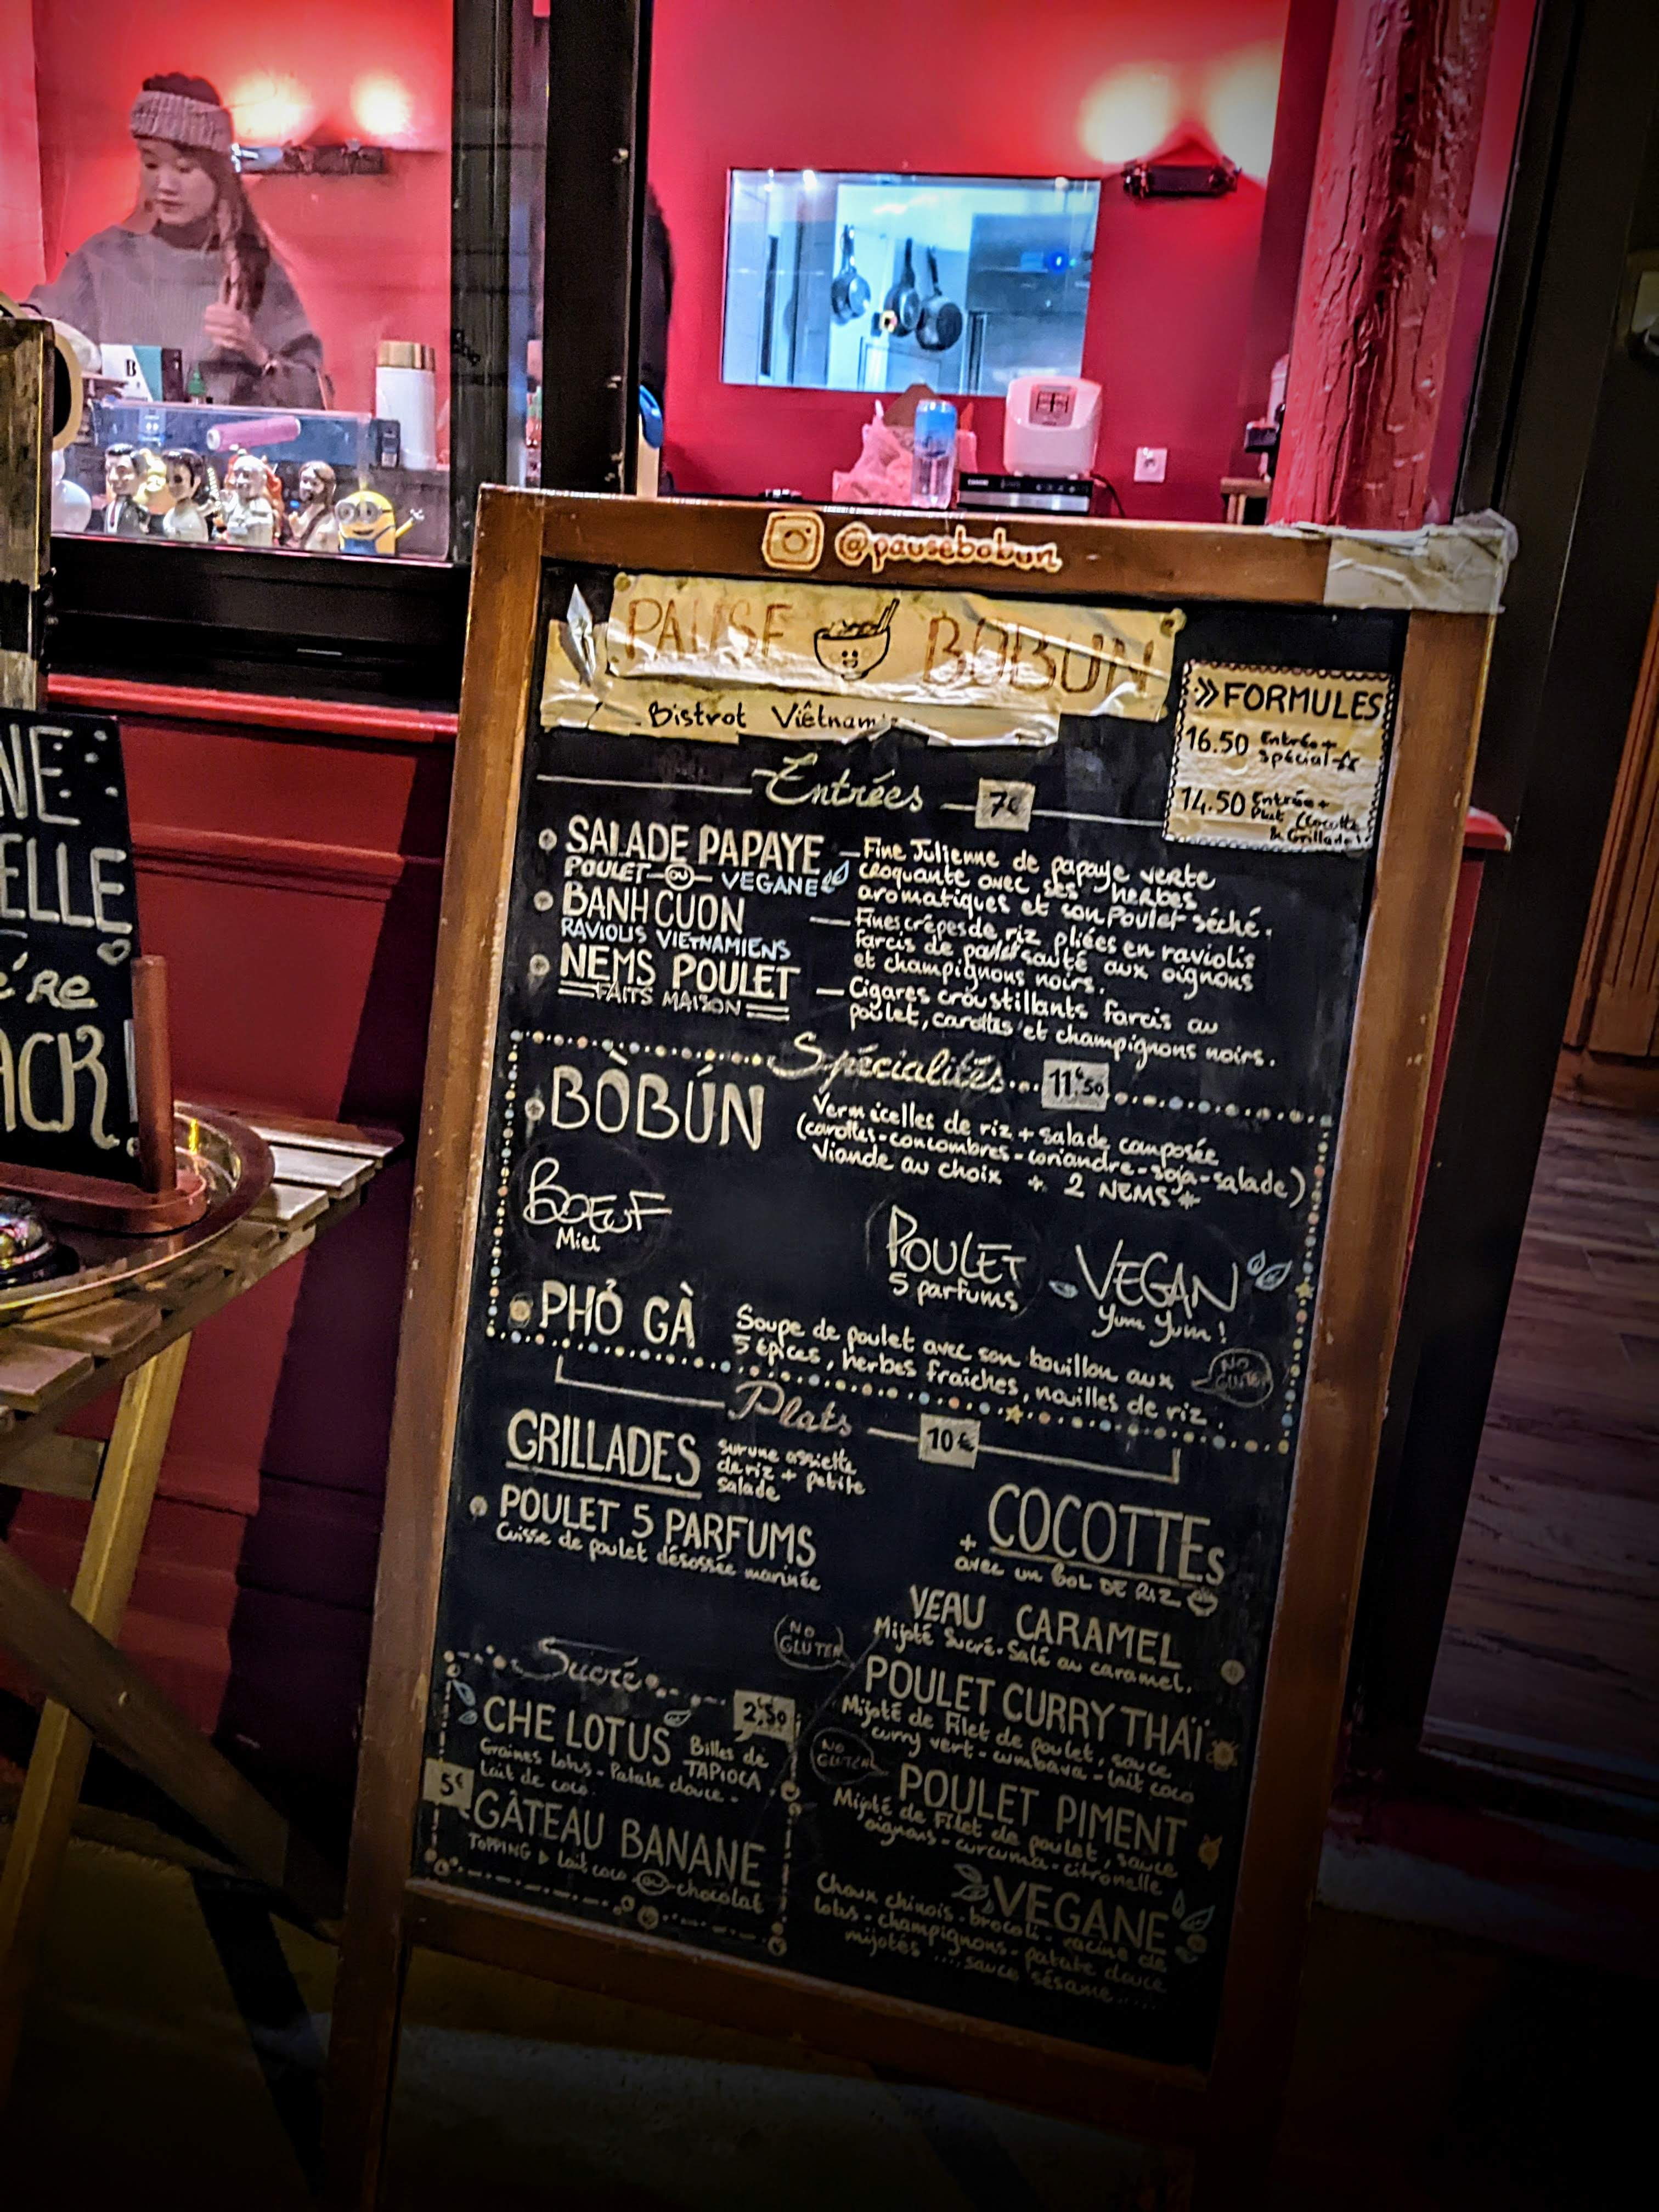 @pausebobun
PAUSE BOBUN
Bistrot Viêtnam
>> FORMULES
16.50 Entrée + Spécialités
14.50 Entrée + Plat (Cocotte & Grillade)
Entrées 7€
SALADE PAPAYE
POULET OU VEGANE
Fine Julienne de papaye verte
croquante avec ses herbes
aromatiques et son Poulet séché.
BANH CUON
RAVIOLIS VIETNAMIENS
Fines crêpes de riz pliées en raviolis
farcis de poulet sauté aux oignons
et champignons noirs.
NEMS POULET
FAITS MAISON
Cigares croustillants farcis au
poulet, carottes et champignons noirs.
Spécialités... 11€50
BÒBÚN
Vermicelles de riz + salade composée
(carottes-concombres-coriandre-soja-salade)
Viande au choix + 2 NEMS*
BOEUF
Miel
POULET
5 parfums
VEGAN
Yum Yum!
PHỞ GÀ
Soupe de poulet avec son bouillon aux
5 épices, herbes fraîches, nouilles de riz.
NO GLUTEN
Plats 10€
GRILLADES
sur une assiette
de riz + petite
salade
POULET 5 PARFUMS
Cuisse de poulet désossée marinée
COCOTTEs
+ avec un BOL DE RIZ
VEAU CARAMEL
Mijoté Sucré-Salé au caramel.
NO GLUTEN
POULET CURRY THAÏ
Mijoté de Filet de poulet, sauce
curry vert - cumbava - lait coco
NO GLUTEN
POULET PIMENT
Mijoté de Filet de poulet, sauce
oignons - curcuma - citronelle
VEGANE
Choux chinois - brocoli - racine de
lotus - champignons - patate douce
mijotés .... sauce sésame.....
Sucré 2,50
CHE LOTUS
Billes de TAPIOCA,
Graines lotus - Patate douce -
Lait de coco.
5€
GÂTEAU BANANE
TOPPING Lait coco ou chocolat
NE
ELLE
RE
ACK!
B